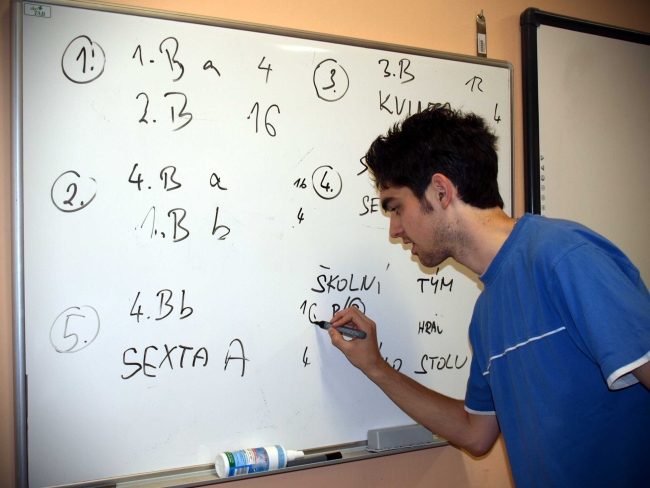 1. 1.B a 4
2.B 16
2. 4.B a 16
1.B b 4
5. 4.Bb
SEXTA A 4
3. 3.B 12
4
4.
SE
ŠKOLNÍ TÝM
STOLU